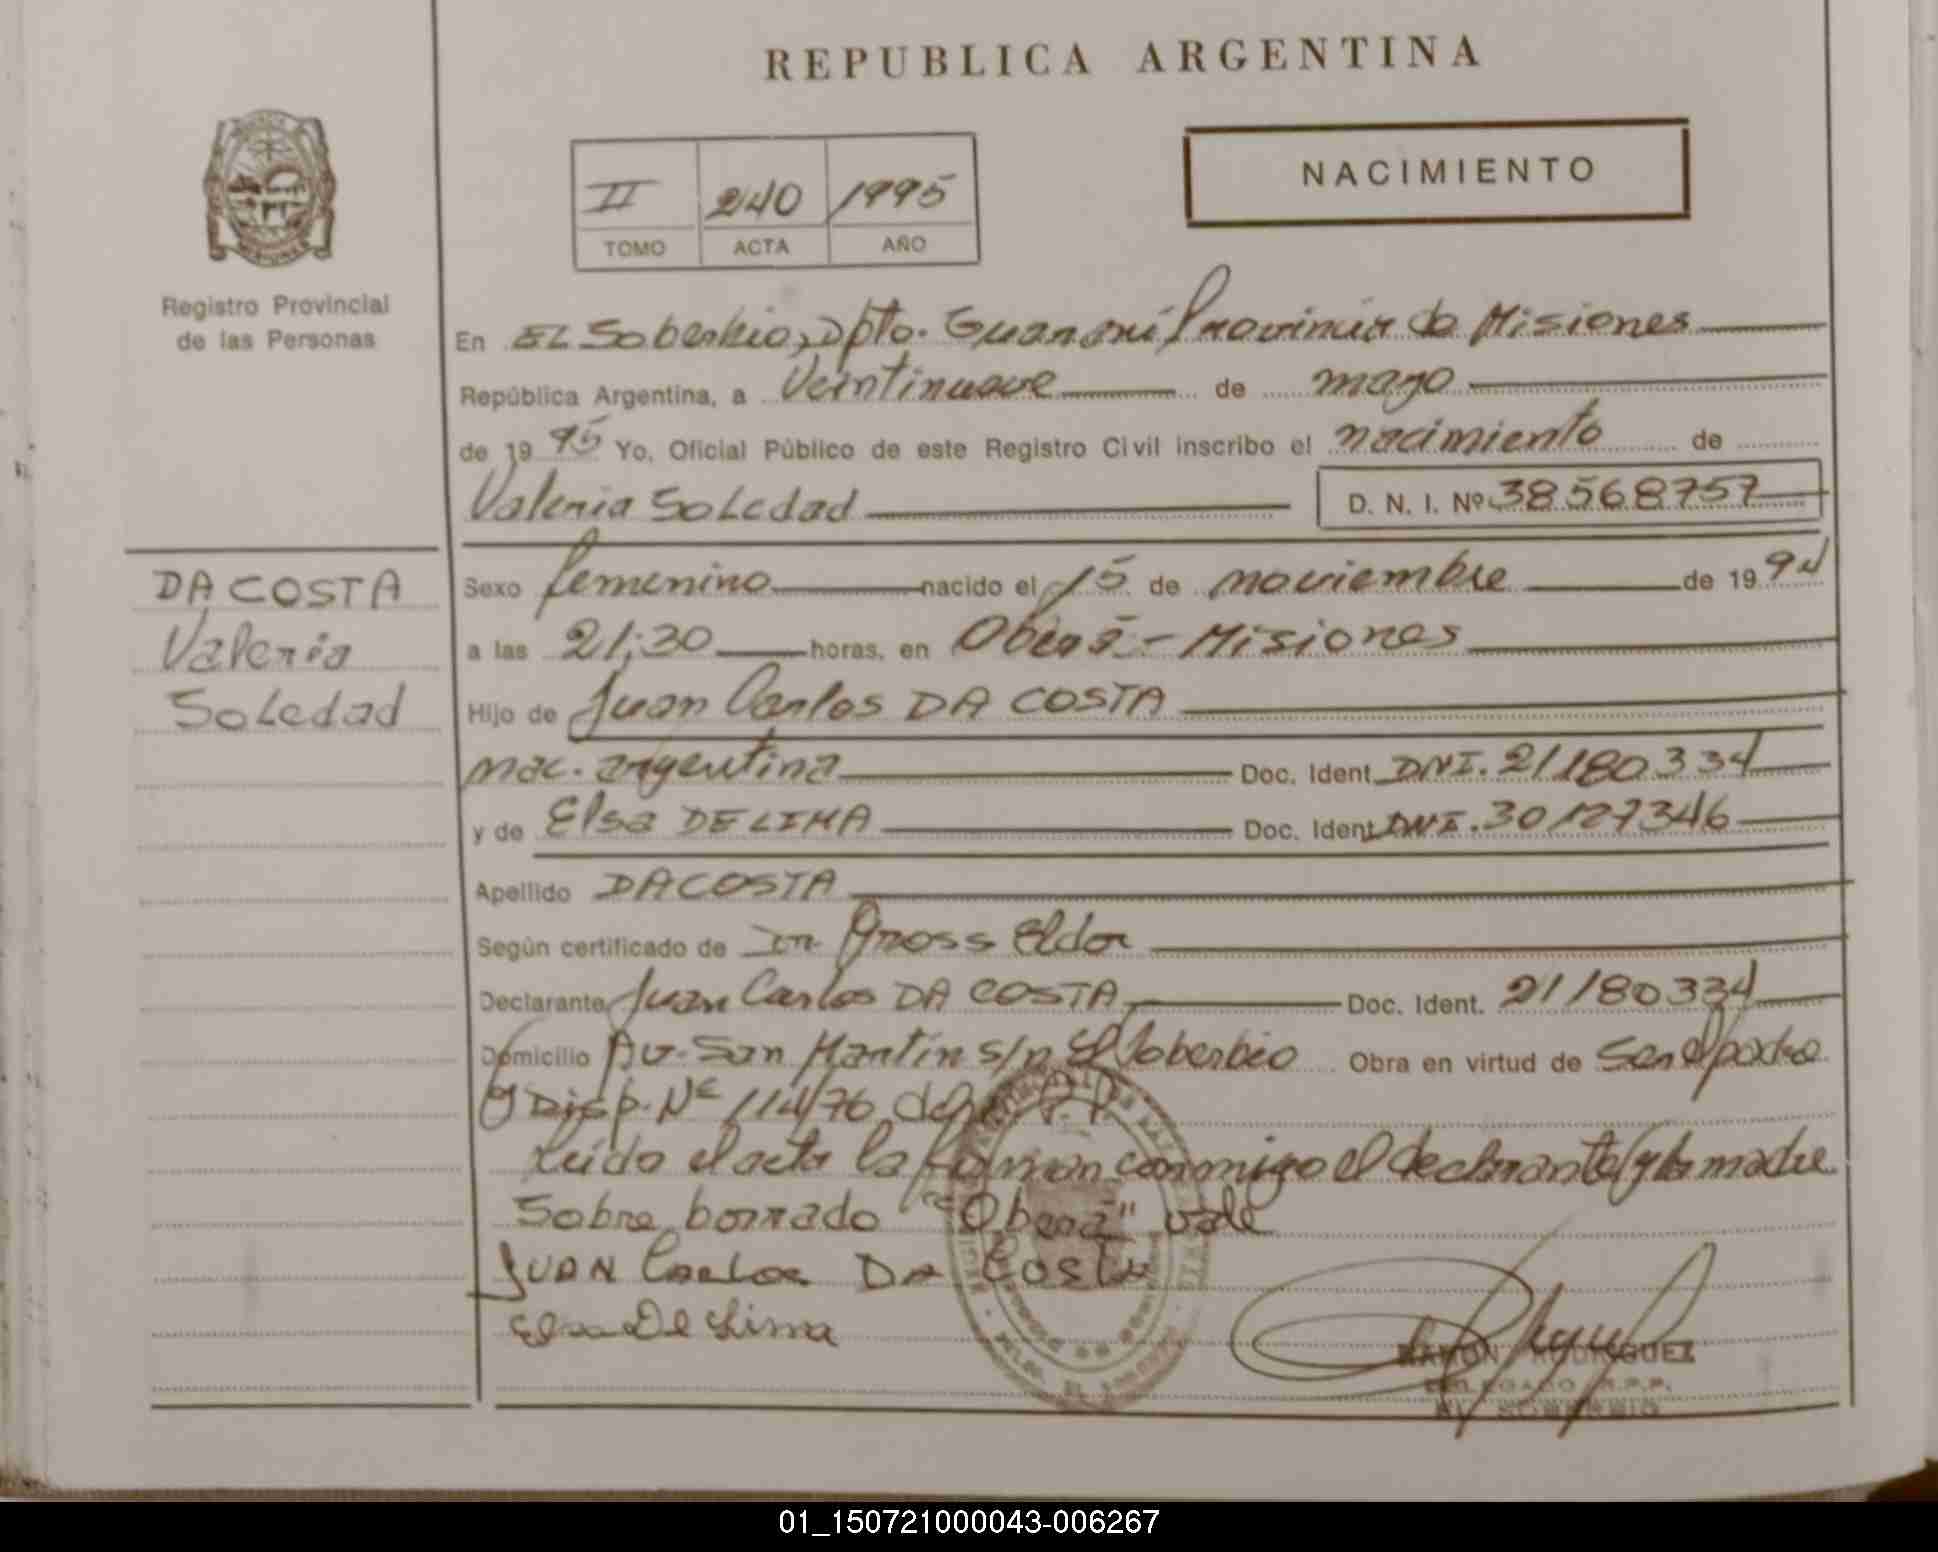 REPUBLICA ARGENTINA
NACIMIENTO
II 240 1995
TOMO ACTA AÑO
Registro Provincial
de las Personas
En El Soberbio, Dpto. Guaraní Provincia de Misiones
República Argentina, a Veintinueve de mayo
de 1995 Yo, Oficial Público de este Registro Civil inscribo el nacimiento de
Valeria Soledad D. N. I. Nº 38568757
DA COSTA
Valeria
Soledad
Sexo femenino nacido el 15 de noviembre de 1994
a las 21:30 horas, en Oberá - Misiones
Hijo de Juan Carlos DA COSTA
nac. argentina Doc. Ident. DNI. 21180334
y de Elsa DE LIMA Doc. Ident. DNI. 30127346
Apellido DA COSTA
Según certificado de Dr. Gross Eldor
Declarante Juan Carlos DA COSTA Doc. Ident. 21180334
Domicilio Av. San Martín s/n El Soberbio Obra en virtud de Ser el padre
y Disp. Nº 114/76 del R.P.P.
Leído el acta la firman conmigo el declarante y la madre
Sobre borrado "Oberá" vale
JUAN Carlos DA Costa
Elsa De Lima
RAMON RODRIGUEZ
DELEGADO R.P.P.
EL SOBERBIO
01_150721000043-006267